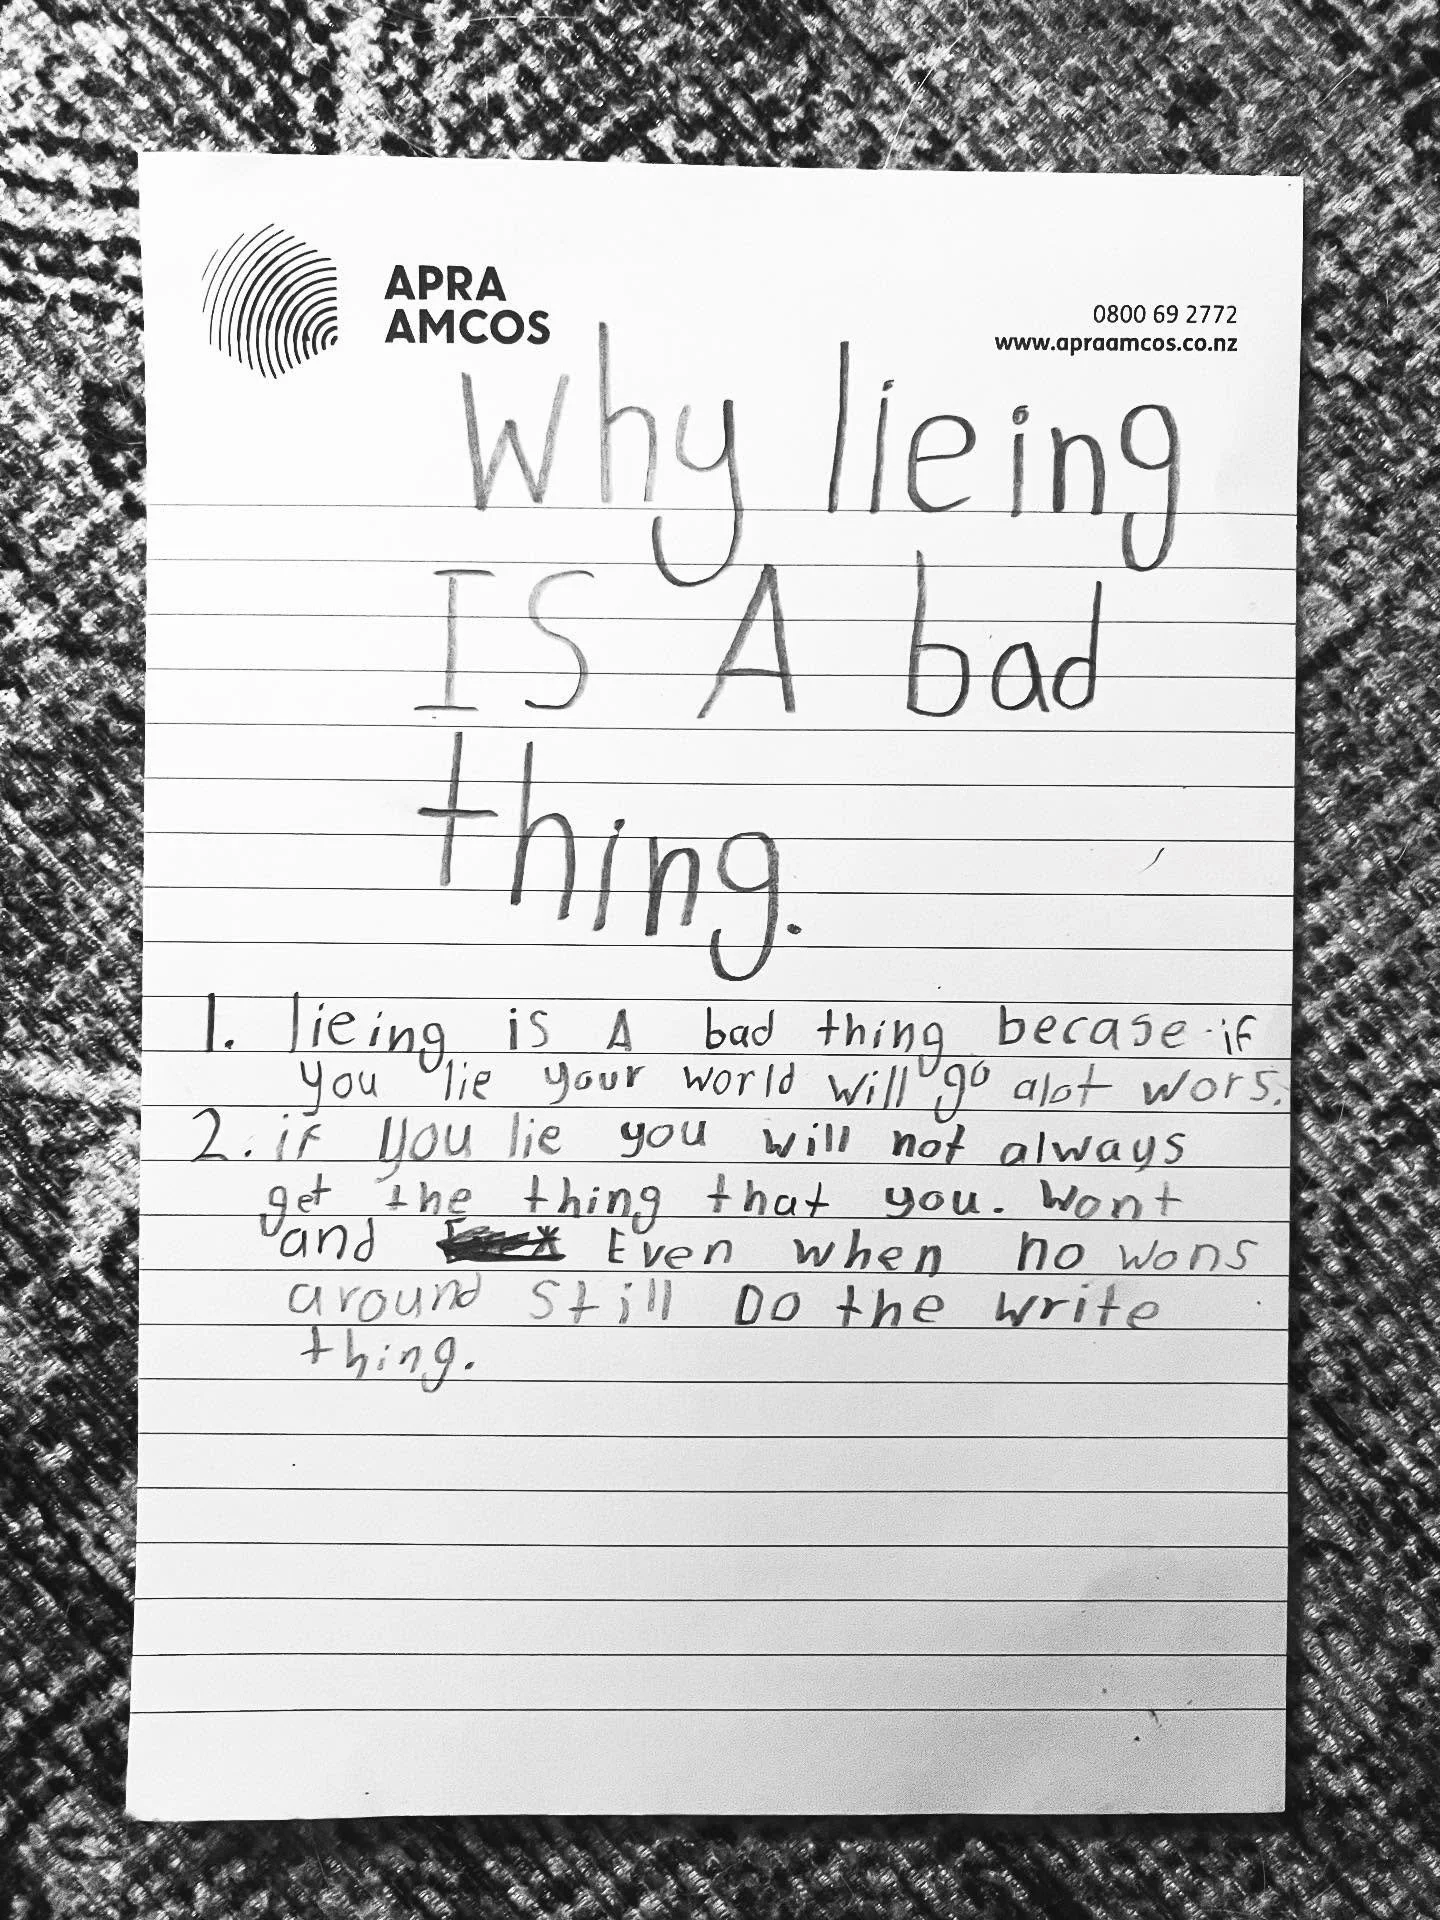 APRA
AMCOS
0800 69 2772
www.apraamcos.co.nz
Why lieing
IS A bad
thing.
1. lieing is A bad thing becase if
you lie your world will go alot wors.
2. if you lie you will not always
get the thing that you. Wont
and Even when no wons
around Still Do the write
thing.